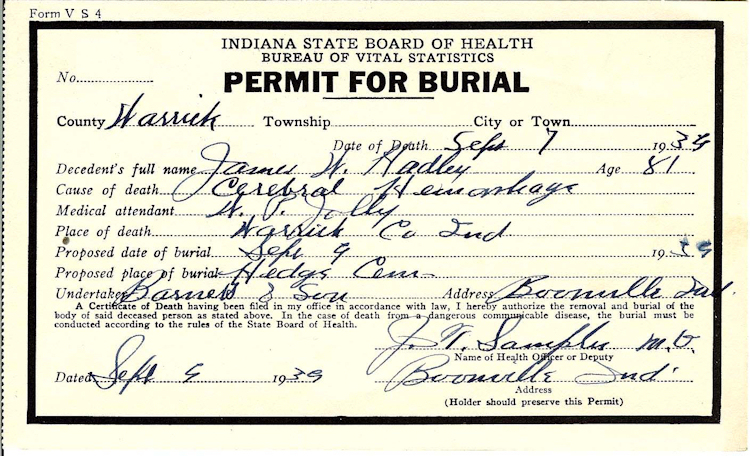 Form V S 4
INDIANA STATE BOARD OF HEALTH
BUREAU OF VITAL STATISTICS
No.
PERMIT FOR BURIAL
County Warrick Township City or Town
Date of Death Sept 7 1939
Decedent's full name James W. Hadley Age 81
Cause of death Cerebral Hemorhage
Medical attendant W. P. Jolly
Place of death Warrick Co Ind
Proposed date of burial Sept 9 1939
Proposed place of burial Hedge Cem
Undertaker & Son Address Boonville Ind.
A Certificate of Death having been filed in my office in accordance with law, I hereby authorize the removal and burial of the
body of said deceased person as stated above. In the case of death from a dangerous communicable disease, the burial must be
conducted according to the rules of the State Board of Health.
J. M.D.
Name of Health Officer or Deputy
Dated Sept 9 1939 Boonville Ind
Address
(Holder should preserve this Permit)